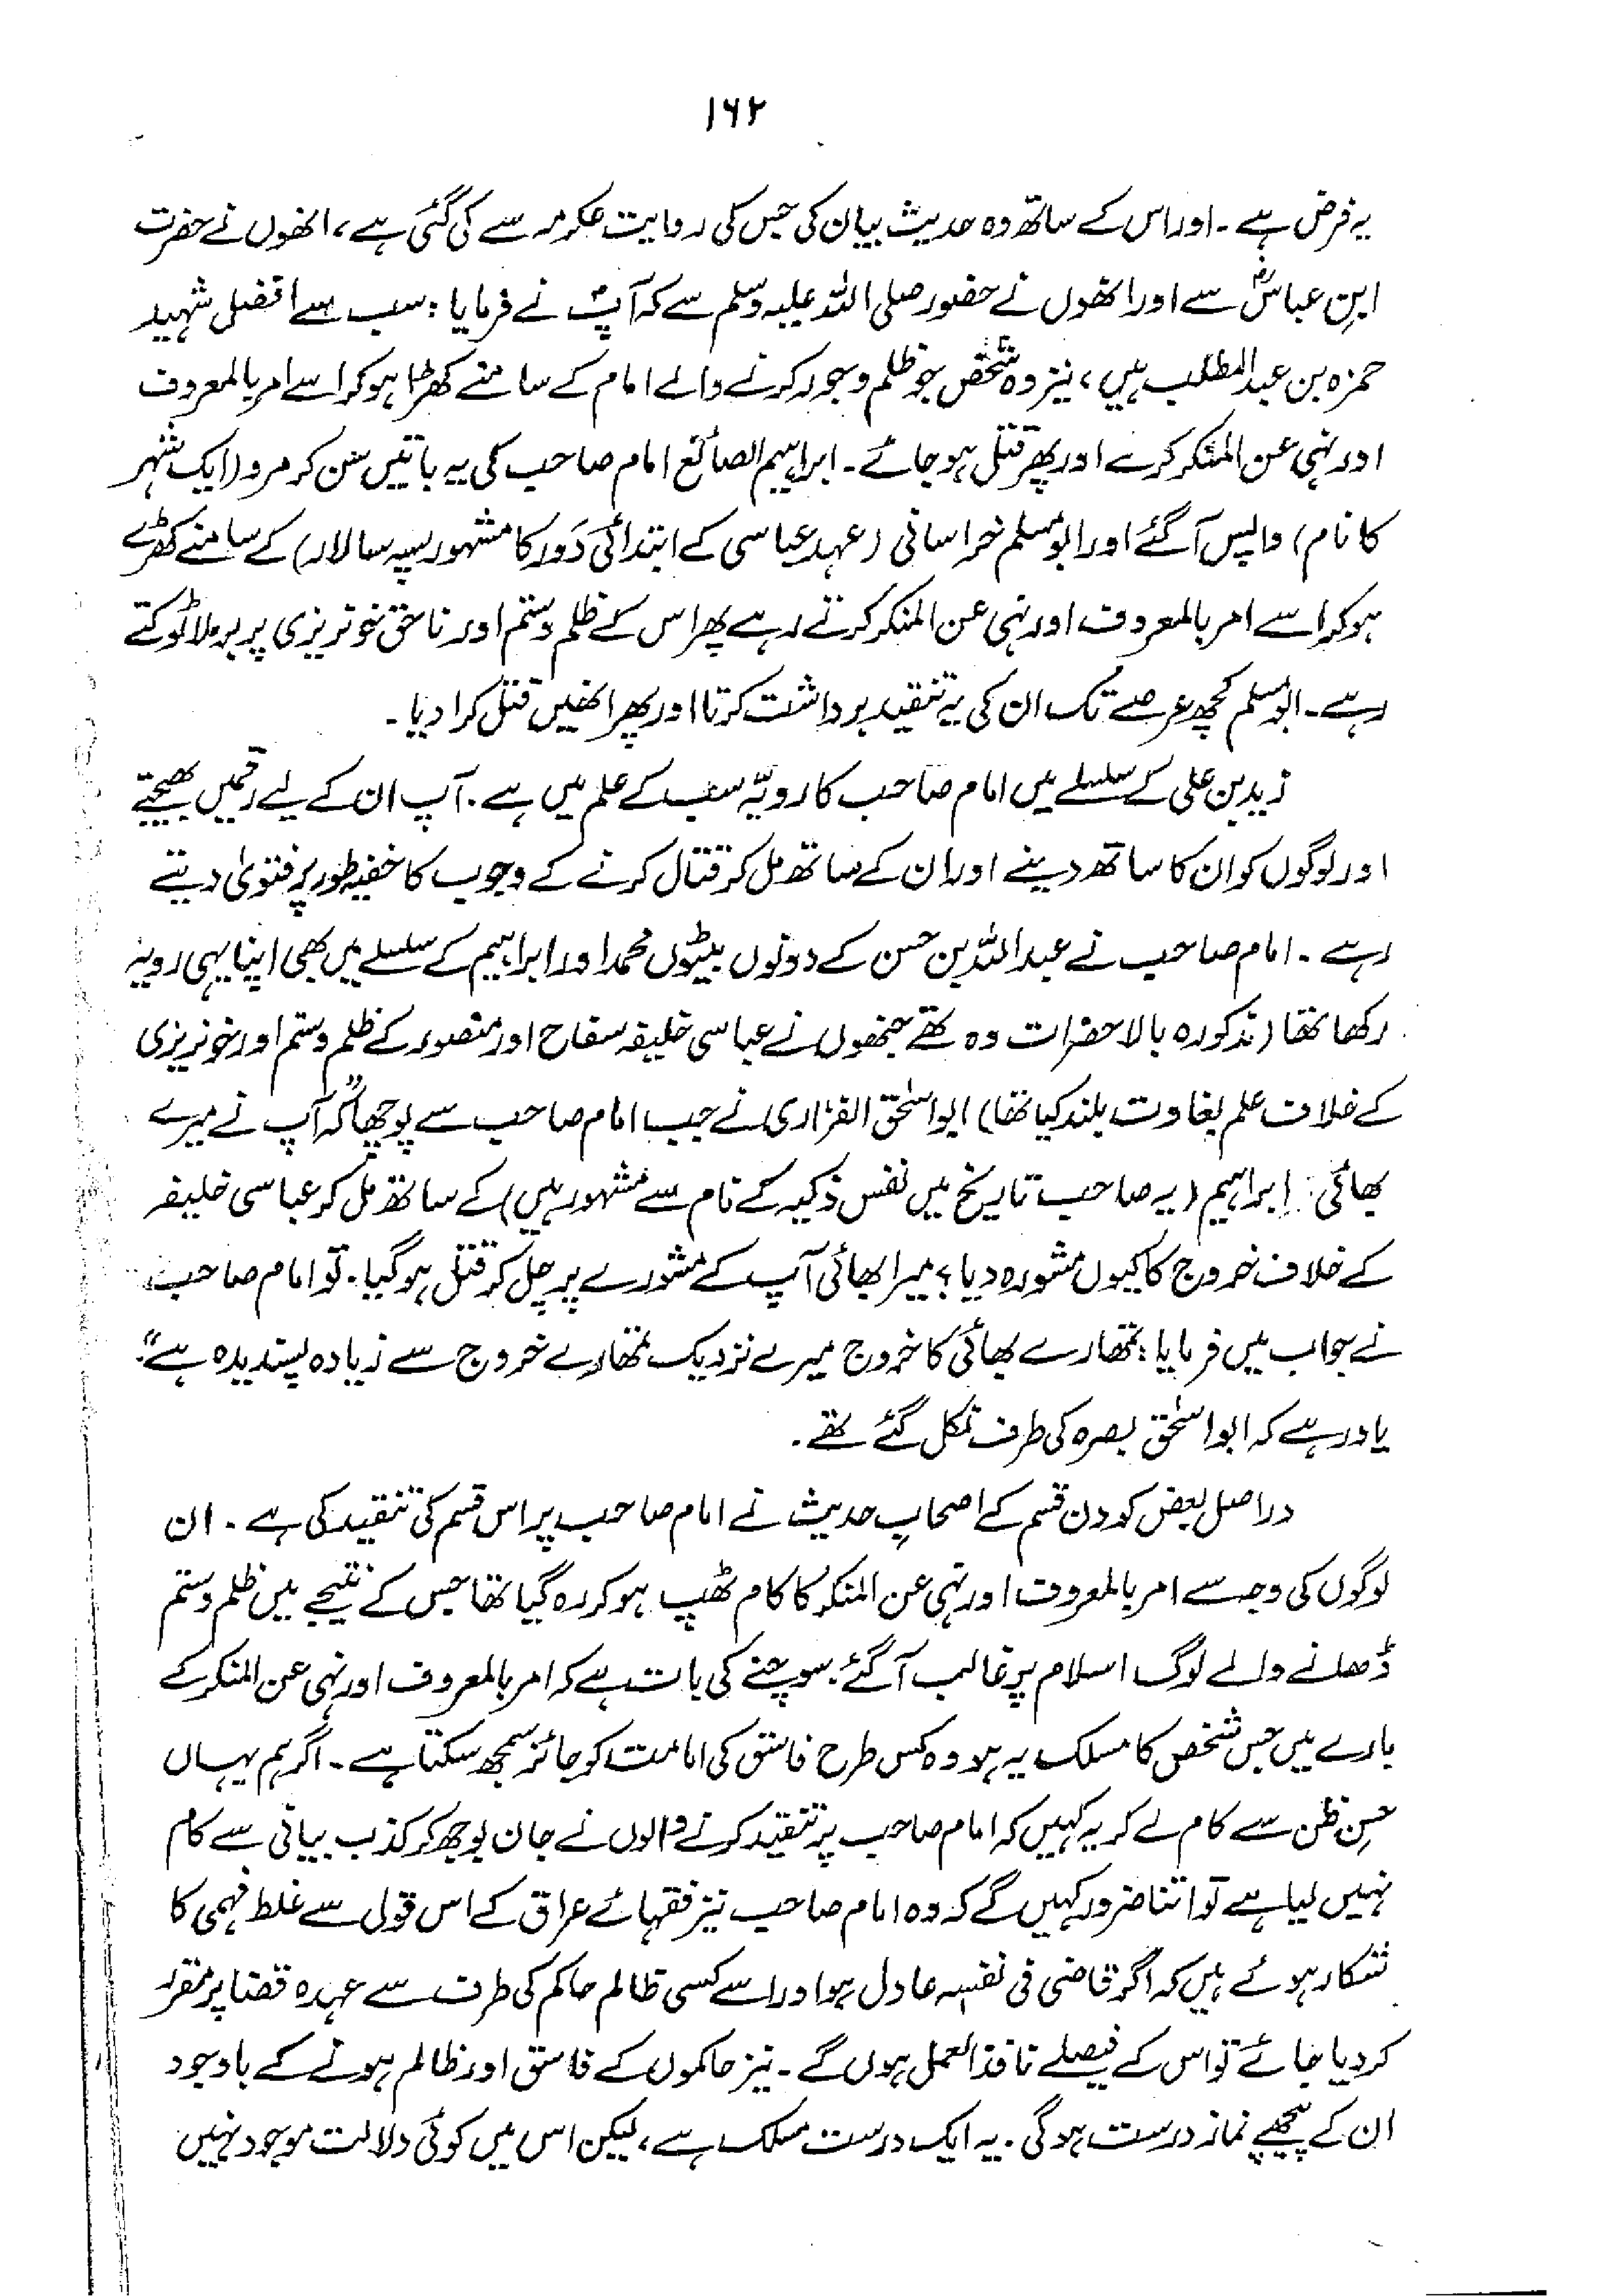 ۱۶۲
یہ فرض ہے ۔ اور اس کے ساتھ وہ حدیث بیان کی جس کی روایت عکرمہ سے کی گئی ہے ، انھوں نے حضرت
ابنِ عباسؓ سے اور انھوں نے حضور صلی اللہ علیہ وسلم سے کہ آپؐ نے فرمایا : سب سے افضل شہید
حمزہ بن عبدالمطلب ہیں ، نیز وہ شخص جو ظلم وجور کرنے والے امام کے سامنے کھڑا ہو کر اسے امر بالمعروف
اور نہی عن المنکر کرے اور پھر قتل ہو جائے ۔ ابراہیم الصائغ امام صاحب کی یہ باتیں سن کر مرو (ایک شہر
کا نام) واپس آگئے اور ابومسلم خراسانی (عہدِ عباسی کے ابتدائی دَور کا مشہور سپہ سالار) کے سامنے کھڑے
ہو کر اسے امر بالمعروف اور نہی عن المنکر کرتے رہے پھر اس کے ظلم وستم اور ناحق خونریزی پر برملا ٹوکتے
رہے ۔ ابومسلم کچھ عرصے تک ان کی یہ تنقید برداشت کرتا اور پھر انھیں قتل کرا دیا ۔
زید بن علی کے سلسلے میں امام صاحب کا رویّہ سب کے علم میں ہے ۔ آپ ان کے لیے رقمیں بھیجتے
اور لوگوں کو ان کا ساتھ دینے اور ان کے ساتھ مل کر قتال کرنے کے وجوب کا خفیہ طور پر فتویٰ دیتے
رہے ۔ امام صاحب نے عبداللہ بن حسن کے دونوں بیٹوں محمد اور ابراہیم کے سلسلے میں بھی اپنا یہی رویہ
رکھا تھا (مذکورہ بالا حضرات وہ تھے جنھوں نے عباسی خلیفہ سفاح اور منصور کے ظلم وستم اور خونریزی
کے خلاف علم بغاوت بلند کیا تھا) ابواسحٰق الفزاری نے جب امام صاحب سے پوچھا "کہ آپ نے میرے
بھائی : ابراہیم (یہ صاحب تاریخ میں نفس ذکیہ کے نام سے مشہور ہیں) کے ساتھ مل کر عباسی خلیفہ
کے خلاف خروج کا کیوں مشورہ دیا ؟ میرا بھائی آپ کے مشورے پر چل کر قتل ہوگیا ۔ تو امام صاحب
نے جواب میں فرمایا : تمھارے بھائی کا خروج میرے نزدیک تمھارے خروج سے زیادہ پسندیدہ ہے"۔
یاد رہے کہ ابواسحٰق بصرہ کی طرف نکل گئے تھے ۔
دراصل بعض کودن قسم کے اصحابِ حدیث نے امام صاحب پر اس قسم کی تنقید کی ہے ۔ ان
لوگوں کی وجہ سے امر بالمعروف اور نہی عن المنکر کا کام ٹھپ ہو کر رہ گیا تھا جس کے نتیجے میں ظلم وستم
ڈھانے والے لوگ اسلام پر غالب آگئے ۔ سوچنے کی بات ہے کہ امر بالمعروف اور نہی عن المنکر کے
بارے میں جس شخص کا مسلک یہ ہو وہ کس طرح فاسق کی امامت کو جائز سمجھ سکتا ہے ۔ اگر ہم یہاں
حسنِ ظن سے کام لے کر یہ کہیں کہ امام صاحب پر تنقید کرنے والوں نے جان بوجھ کر کذب بیانی سے کام
نہیں لیا ہے تو اتنا ضرور کہیں گے کہ وہ امام صاحب نیز فقہائے عراق کے اس قول سے غلط فہمی کا
شکار ہوئے ہیں کہ اگر قاضی فی نفسہٖ عادل ہو اور اسے کسی ظالم حاکم کی طرف سے عہدہ قضا پر مقرر
کردیا جائے تو اس کے فیصلے نافذ العمل ہوں گے ۔ نیز حاکموں کے فاسق اور ظالم ہونے کے باوجود
ان کے پیچھے نماز درست ہوگی ۔ یہ ایک درست مسلک ہے ، لیکن اس میں کوئی دلالت موجود نہیں